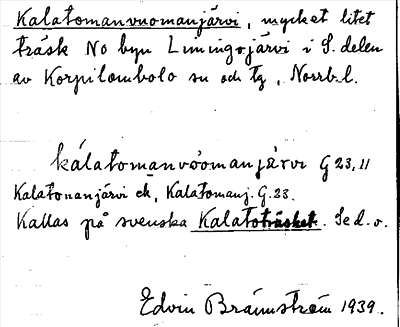 Kalatomanvuomanjärvi, mycket litet
träsk NO byn Limingojärvi i S. delen
av Korpilombolo sn och tg, Norrb. l.
kàlatomanvòomanjærvi G 23, 11
Kalatomanjärvi ek, Kalatomanj. G. 23.
Kallas på svenska Kalatoträsket. Se d. o.
Edvin Brännström 1939.